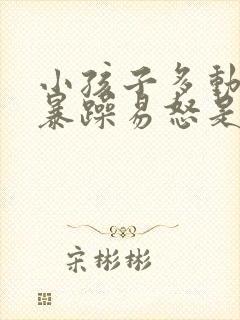 小孩子多動
暴躁易怒是
宋彬彬